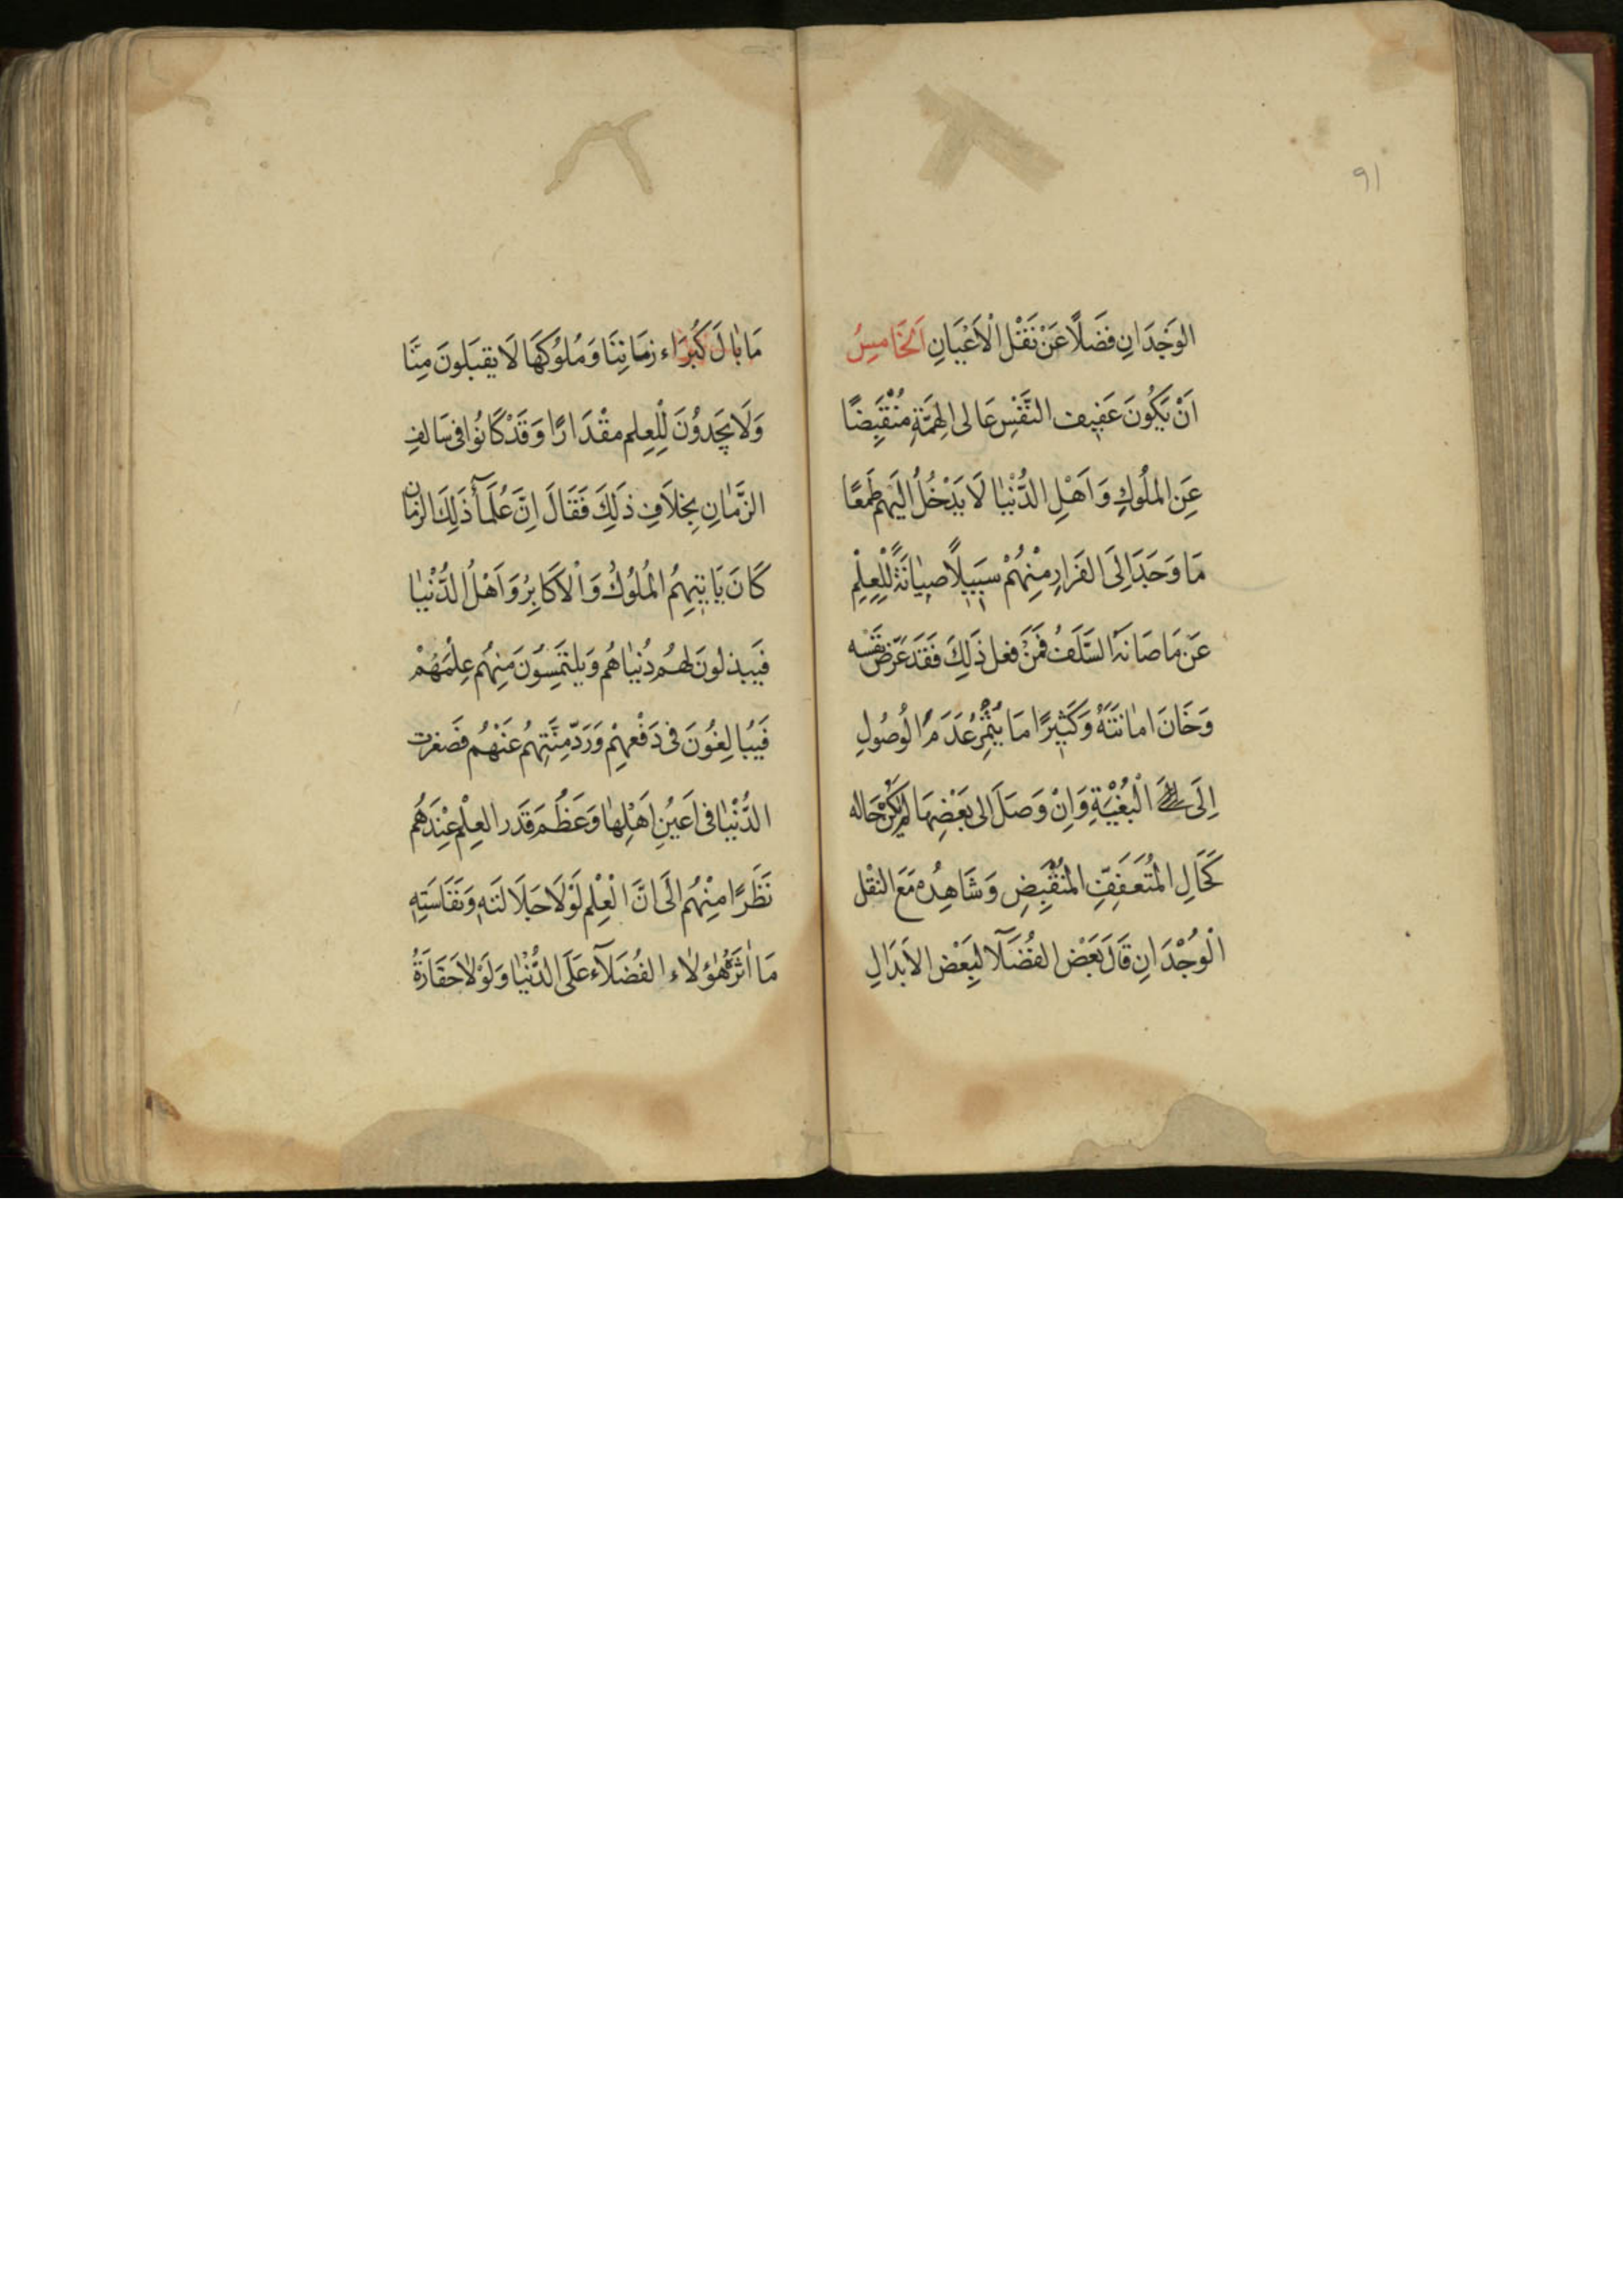 ٩١
الوَجَدَانِ فَضَلًا عَنْ نَقْلِ الْاَعْيَانِ اَلْخَامِسُ
اَنْ يَكُونَ عَفِيفَ النَّفْسِ عَالى الِهمَّةِ مُنْقَبِضًا
عَنِ المُلُوكِ وَاَهْلِ الدُّنْيٰا لَا يَدْخُلُ اِلَيْهِم طَمَعًا
مَا وَجَدَ اِلَى الفَرارِ مِنْهُمْ سَبيلًا صِيٰانَةً لِلْعِلْمِ
عَن مَا صَانَهُ السَّلَفُ فَمَنْ فعل ذَلِكَ فَقَد عَرّض نَفْسه
وَخَانَ امٰانَتَهُ وَكَثيرًا مَا يُثمِرُ عَدَمَ الوُصُولِ
اِلَى الْبُغْيَةِ وَاِنْ وَصَلَ الى بَعْضِهَا لَم يَكُنْ حَاله
كَحَالِ المُتَعَفِفِّ المُنْقَبِضِ وَشَاهِدُه مَعَ النقْل
الْوُجْدَانِ قَالَ بَعْض الفُضَلَآ لِبَعْض الاَبدَالِ
مَا بٰالَ كُبَرَاء زمَانِنَا وَمُلوُكِهَا لَا يقبَلونَ مِنَّا
وَلَا يَجِدوُنَ لِلْعِلم مقْدَارًا وَقَدْ كَانُوا فى سَالفِ
الزَّمٰانِ بِخِلَافِ ذَلِكَ فَقَالَ اِنَّ عُلَمَآءَ ذَلِكَ الزمٰان
كَانَ يَاتيهِمُ المُلُوكُ وَالْاَكَابِرُ وَاَهْلُ الدُّنْيٰا
فَيَبذلونَ لهُم دُنيٰاهُم وَيلتَمِسوُنَ مِنهُم عِلْمَهُمْ
فَيُبٰالِغُونَ فى دَفْعِهِمْ وَرَدّ مِنَّتِهِم عَنْهُم فَصَغرت
الدُّنْيٰا فى اَعيُنِ اَهْلِهٰا وَعَظُمَ قَدر العِلْمِ عِنْدَهُم
نَظَرًا مِنْهُم اِلَى اَنَّ الْعِلْم لَوْلَا جَلَالَته وَنَفَاسَتِهِ
مَا اٰثَرَهُ هٰؤُلاٰء الفُضَلَآء عَلَى الدُّنْيٰا وَلَوْلاٰ حَقَارَةُ